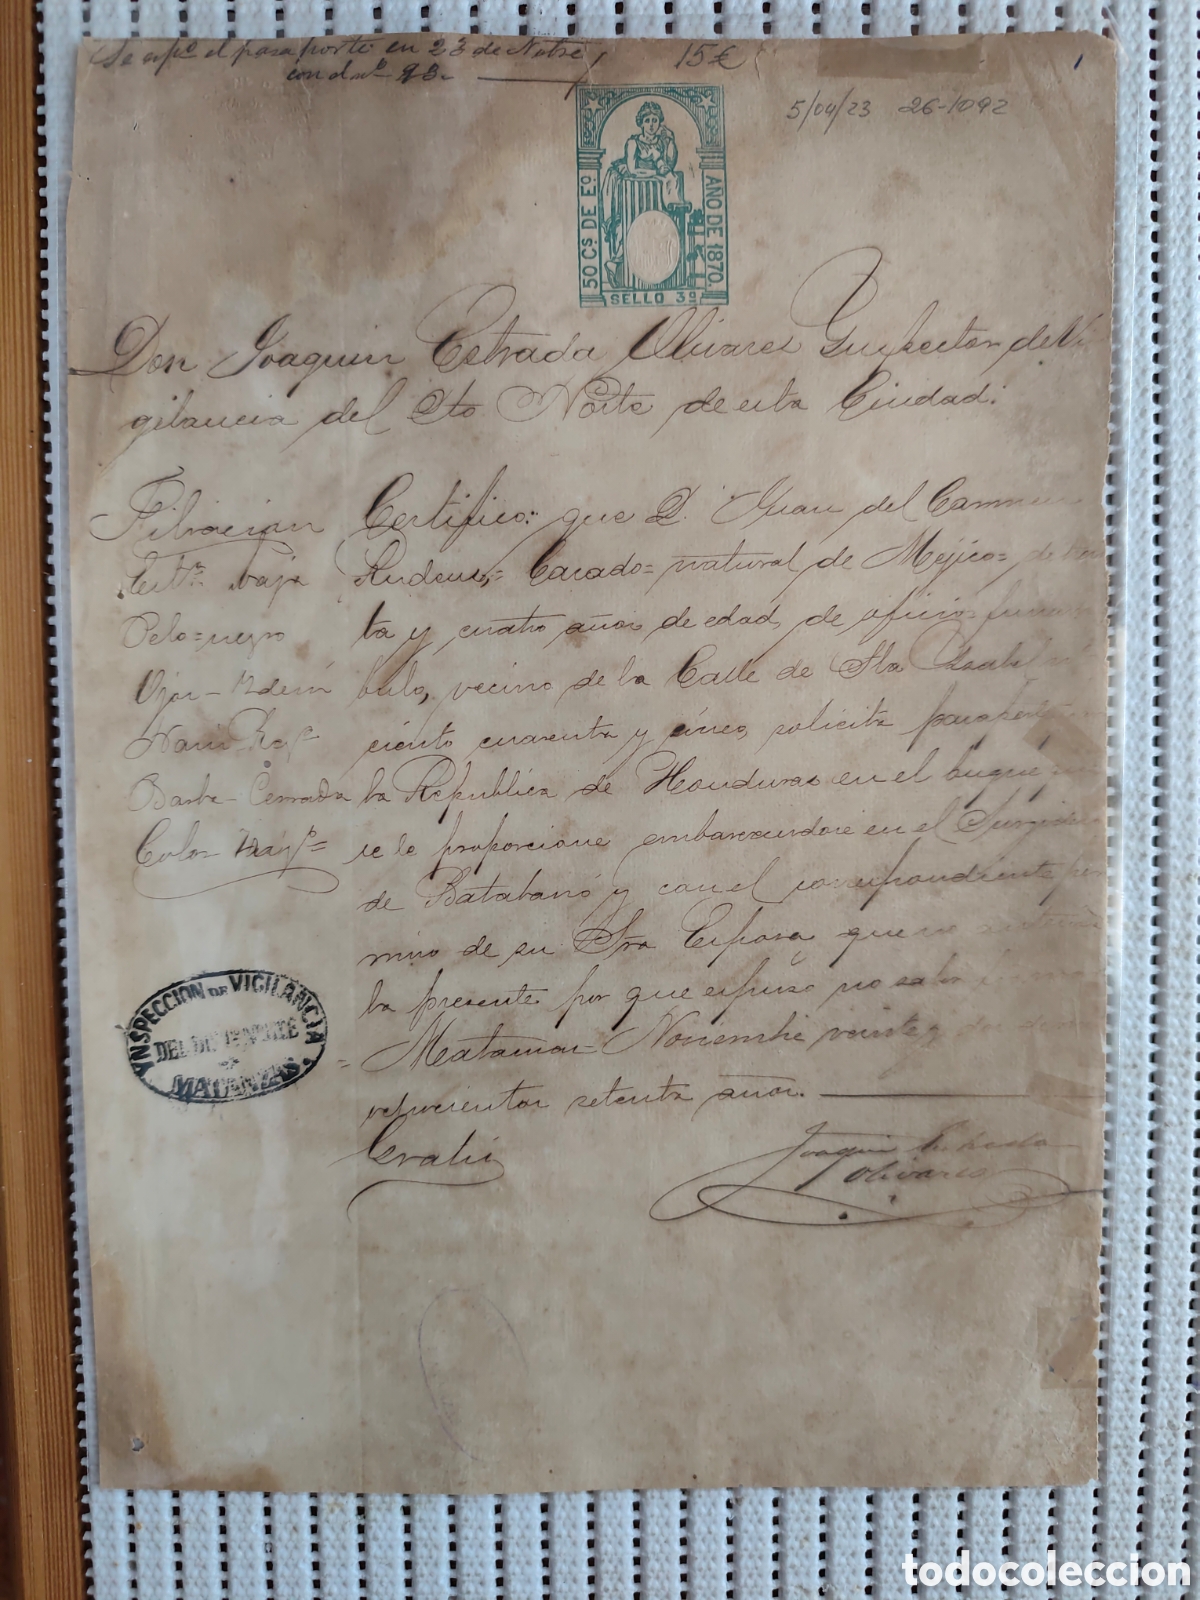 Se espº el pasaporte en 23 de Nobre,
con el nº 93.
15€
1
5/04/23 26-1092
50 Cs DE Eº
AÑO DE 1870.
SELLO 3º
Don Joaquin Estrada Olivares Ynspector de Vi
gilancia del Dto Norte de esta Ciudad.
Filiacion
Estª baja
Pelo=negro
Ojos - Ydem
Nariz Regº
Barba - Cerrada
Color
Certifico: que D. Juan del Carmen
Casado= natural de Mejico=
ta y cuatro años de edad, de oficio
bulo, vecino de la Calle de Sta Isabel
ciento cuarenta y cinco, solicita pasaporte
la Republica de Honduras en el buque
se le proporcione embarcandose en el Surgidero
de Batabanó y con el correspondiente per
miso de su Sra Esposa que no
la presente por que espuso no saber
= Matanzas Noviembre veinte y
ochocientos setenta años.
YNSPECCION DE VIGILANCIA
DEL DTO NORTE
DE
MATANZAS.
Gratis
Joaquin Estrada
Olivares
todocoleccion